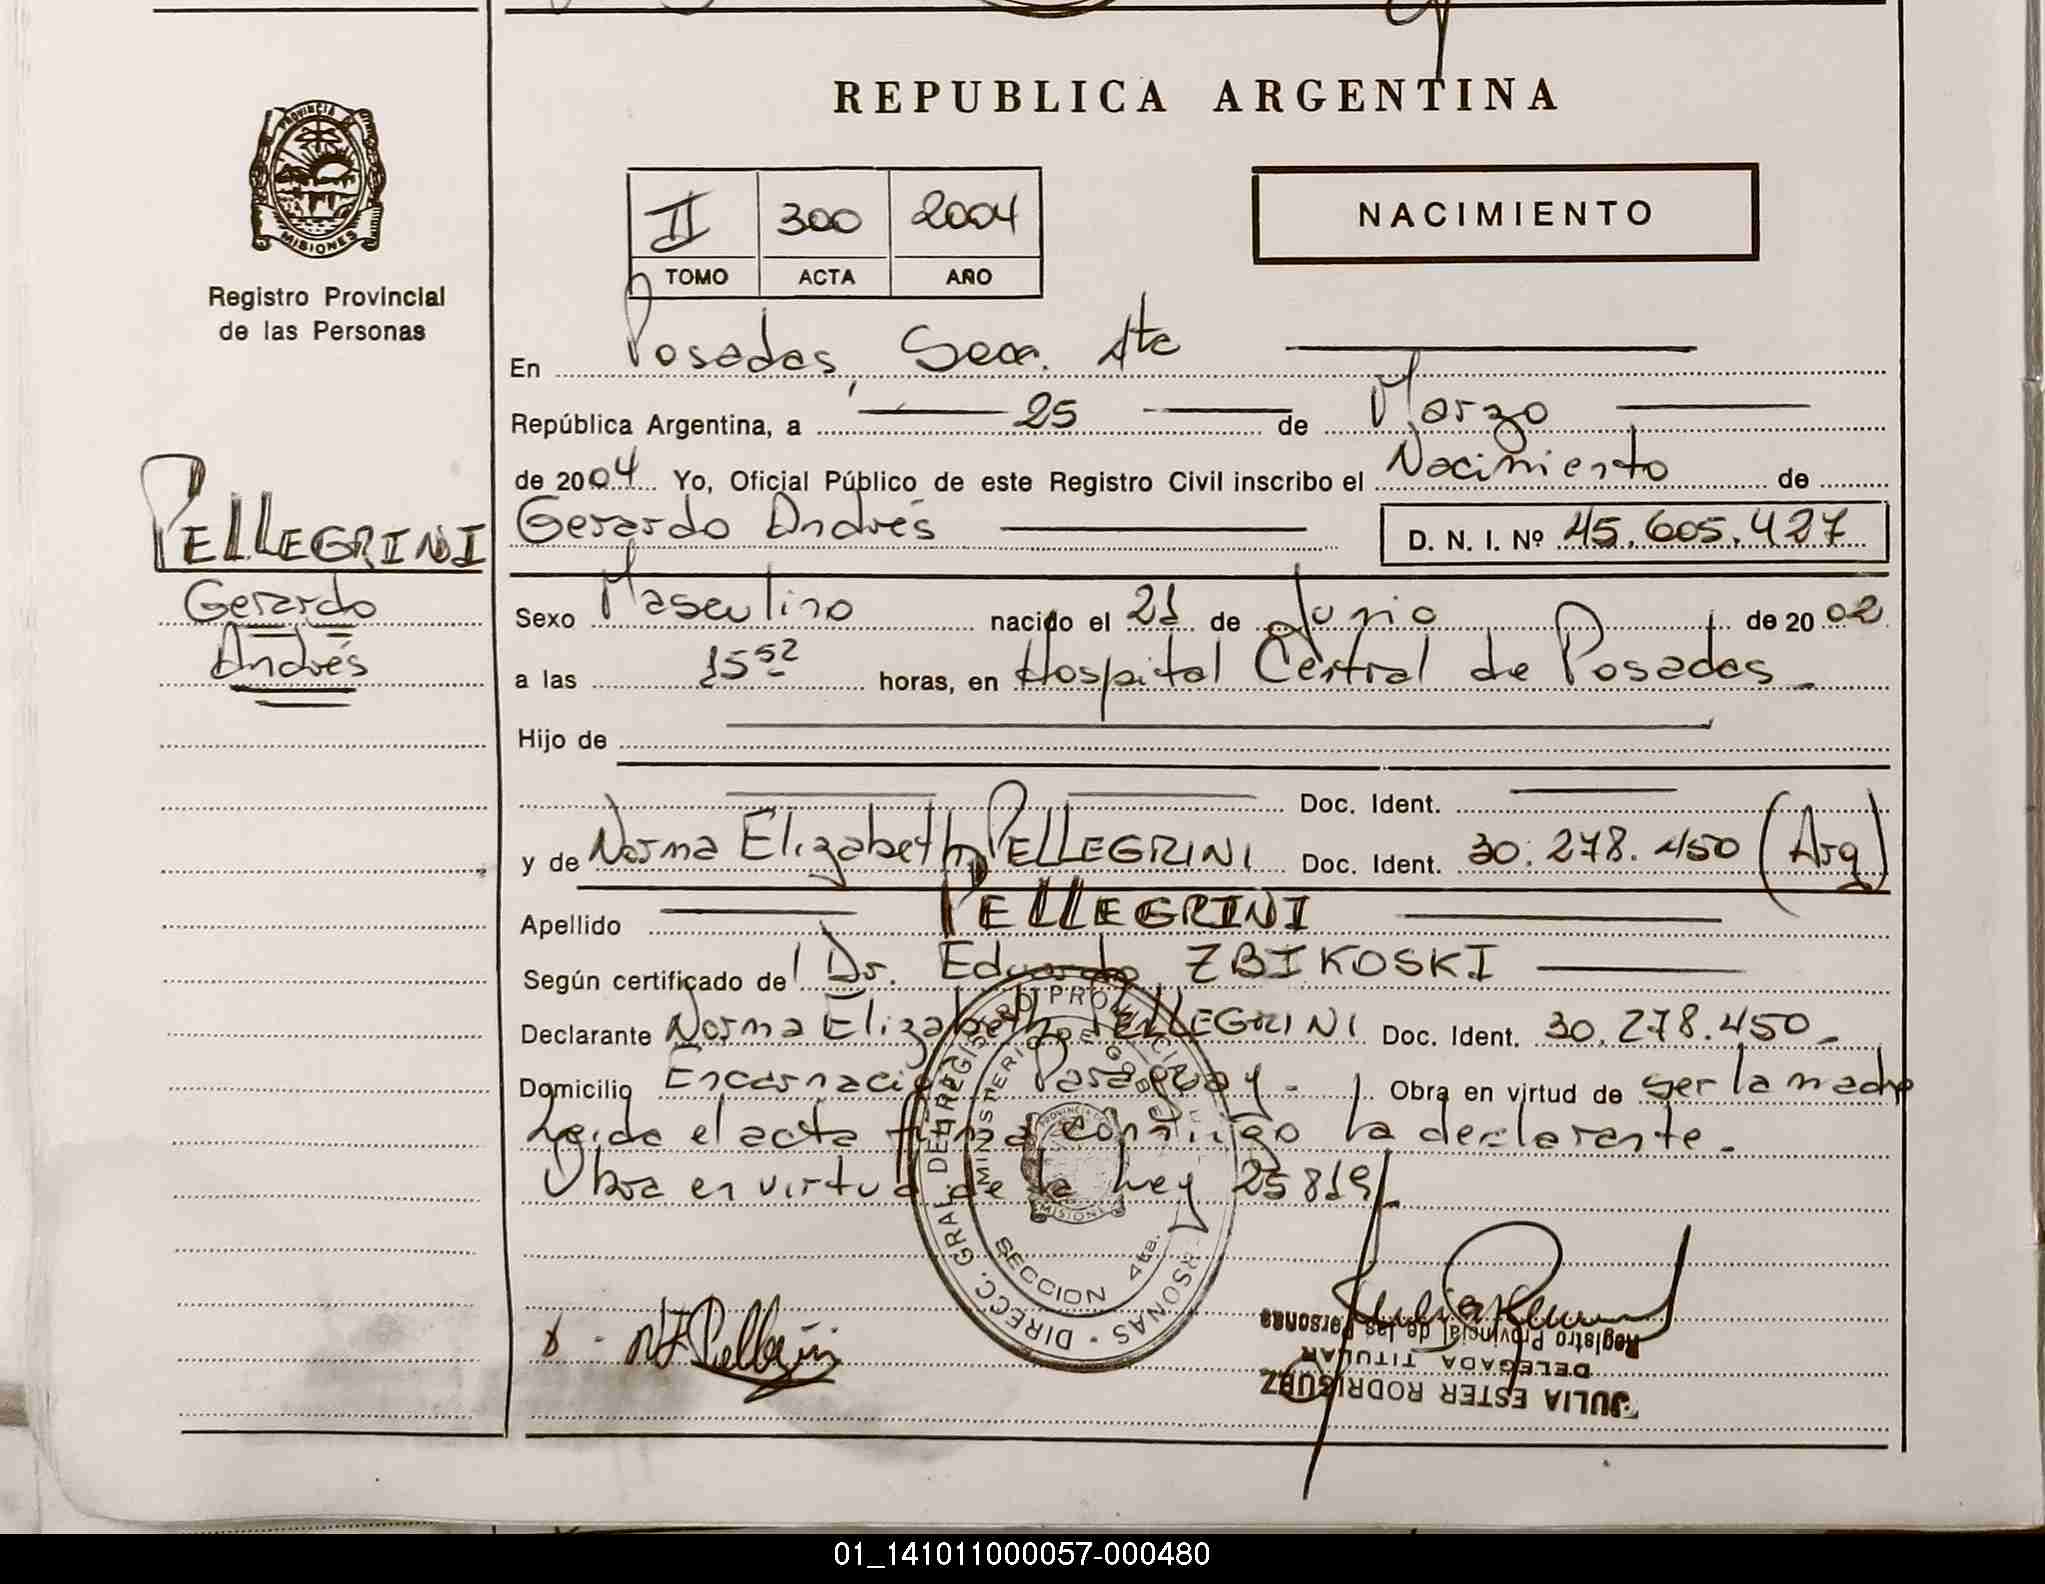 REPUBLICA ARGENTINA
PROVINCIA
MISIONES
Registro Provincial
de las Personas
II 300 2004
TOMO ACTA AÑO
NACIMIENTO
En Posadas, Secc. 4ta
República Argentina, a 25 de Marzo
de 2004 Yo, Oficial Público de este Registro Civil inscribo el Nacimiento de
Gerardo Andrés D. N. I. Nº 45.605.427
PELLEGRINI
Gerardo
Andrés
Sexo Masculino nacido el 21 de Junio de 2002
a las 15 52 horas, en Hospital Central de Posadas
Hijo de
Doc. Ident.
y de Norma Elizabeth PELLEGRINI Doc. Ident. 30.278.450 (Arg)
Apellido PELLEGRINI
Según certificado de Dr. Eduardo ZBIKOSKI
Declarante Norma Elizabeth PELLEGRINI Doc. Ident. 30.278.450
Domicilio Encarnación Paraguay - Obra en virtud de ser la madre
Leida el acta firma conmigo la declarante.
Obra en virtud de la Ley 25819
DIRECC. GRAL. DEL REGISTRO PROVINCIAL PERSONAS
MINISTERIO DE GOBIERNO
PROVINCIA
MISIONES
SECCION 4ta.
x - NE Pellegrini
JULIA ESTER RODRIGUEZ
DELEGADA TITULAR
Registro Provincial de las Personas
01_141011000057-000480